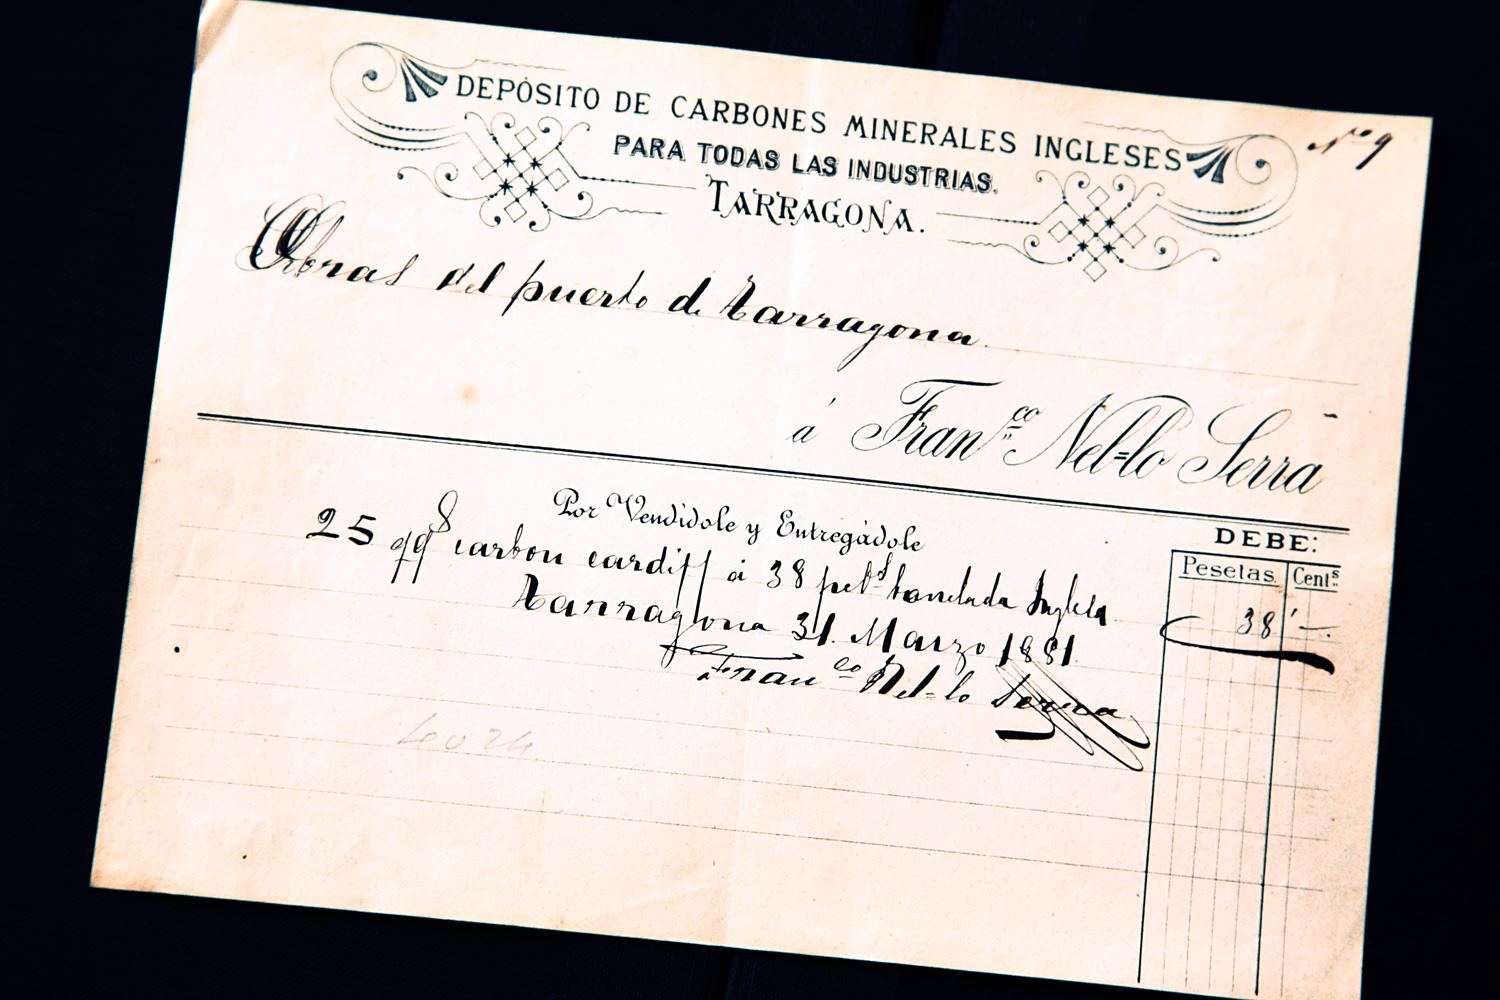 DEPÓSITO DE CARBONES MINERALES INGLESES
Nº 9
PARA TODAS LAS INDUSTRIAS.
TARRAGONA.
Obras del puerto de Tarragona.
á Franco Nel=lo Serra
Por Vendidole y Entregádole
DEBE:
Pesetas. Cents
25 qqs carbon cardiff á 38 pets tonelada Inglesa 38'—.
Tarragona 31. Marzo 1881.
Franco Nel=lo Serra